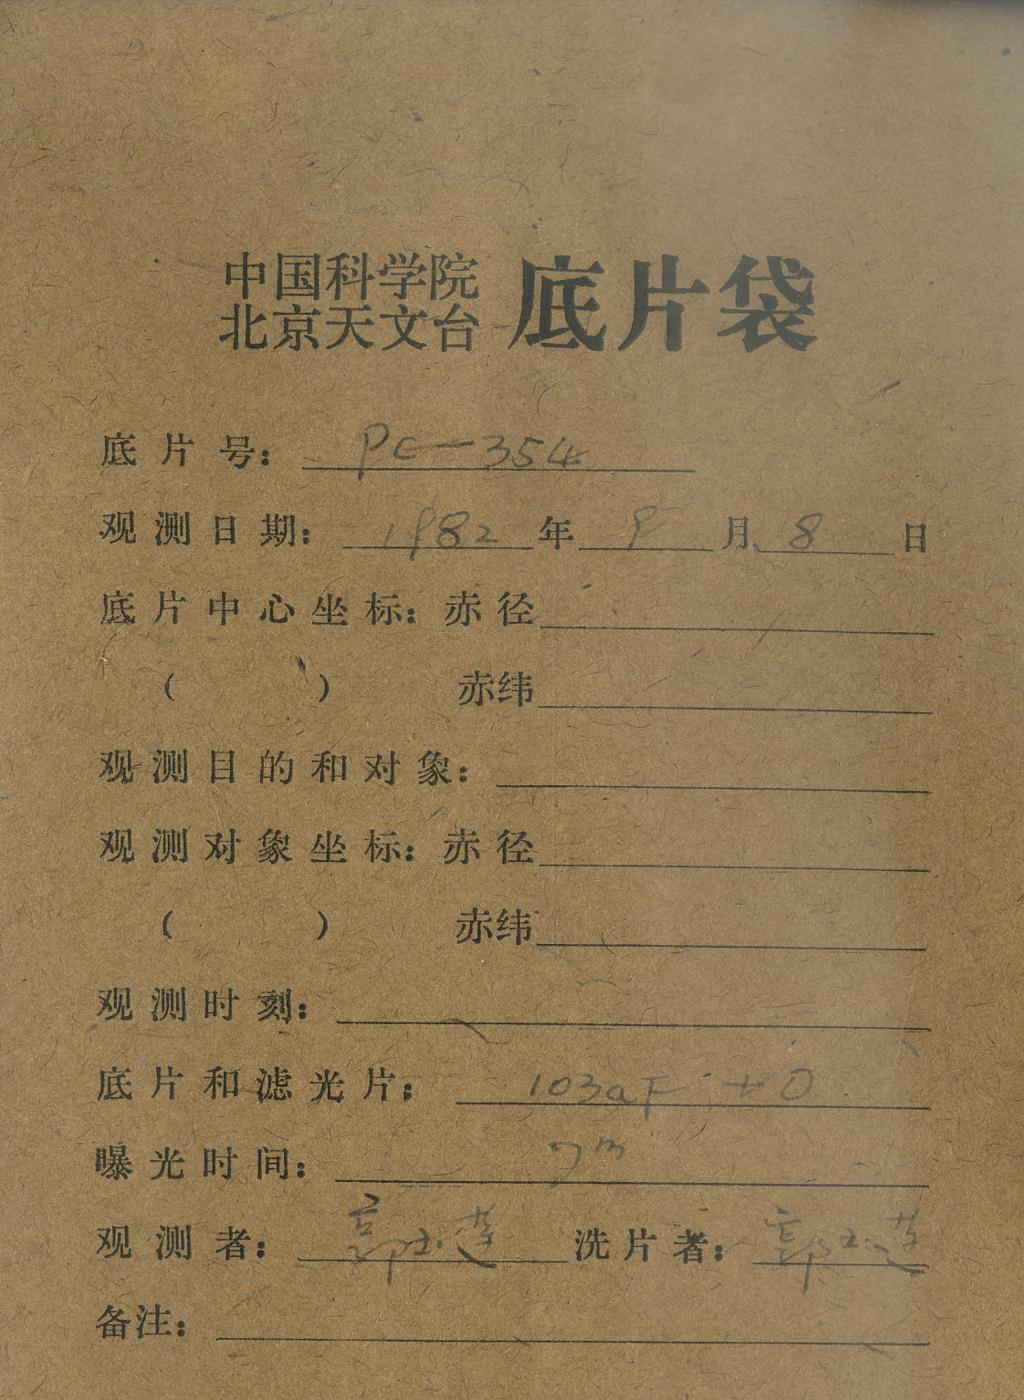 中国科学院
北京天文台 底片袋
底片号: PC-354
观测日期: 1982 年 9 月 8 日
底片中心坐标: 赤径
( ) 赤纬
观测目的和对象:
观测对象坐标: 赤径
( ) 赤纬
观测时刻:
底片和滤光片: 103aF + O
曝光时间: 7m
观测者: 郭玉莲 洗片者: 郭玉莲
备注: